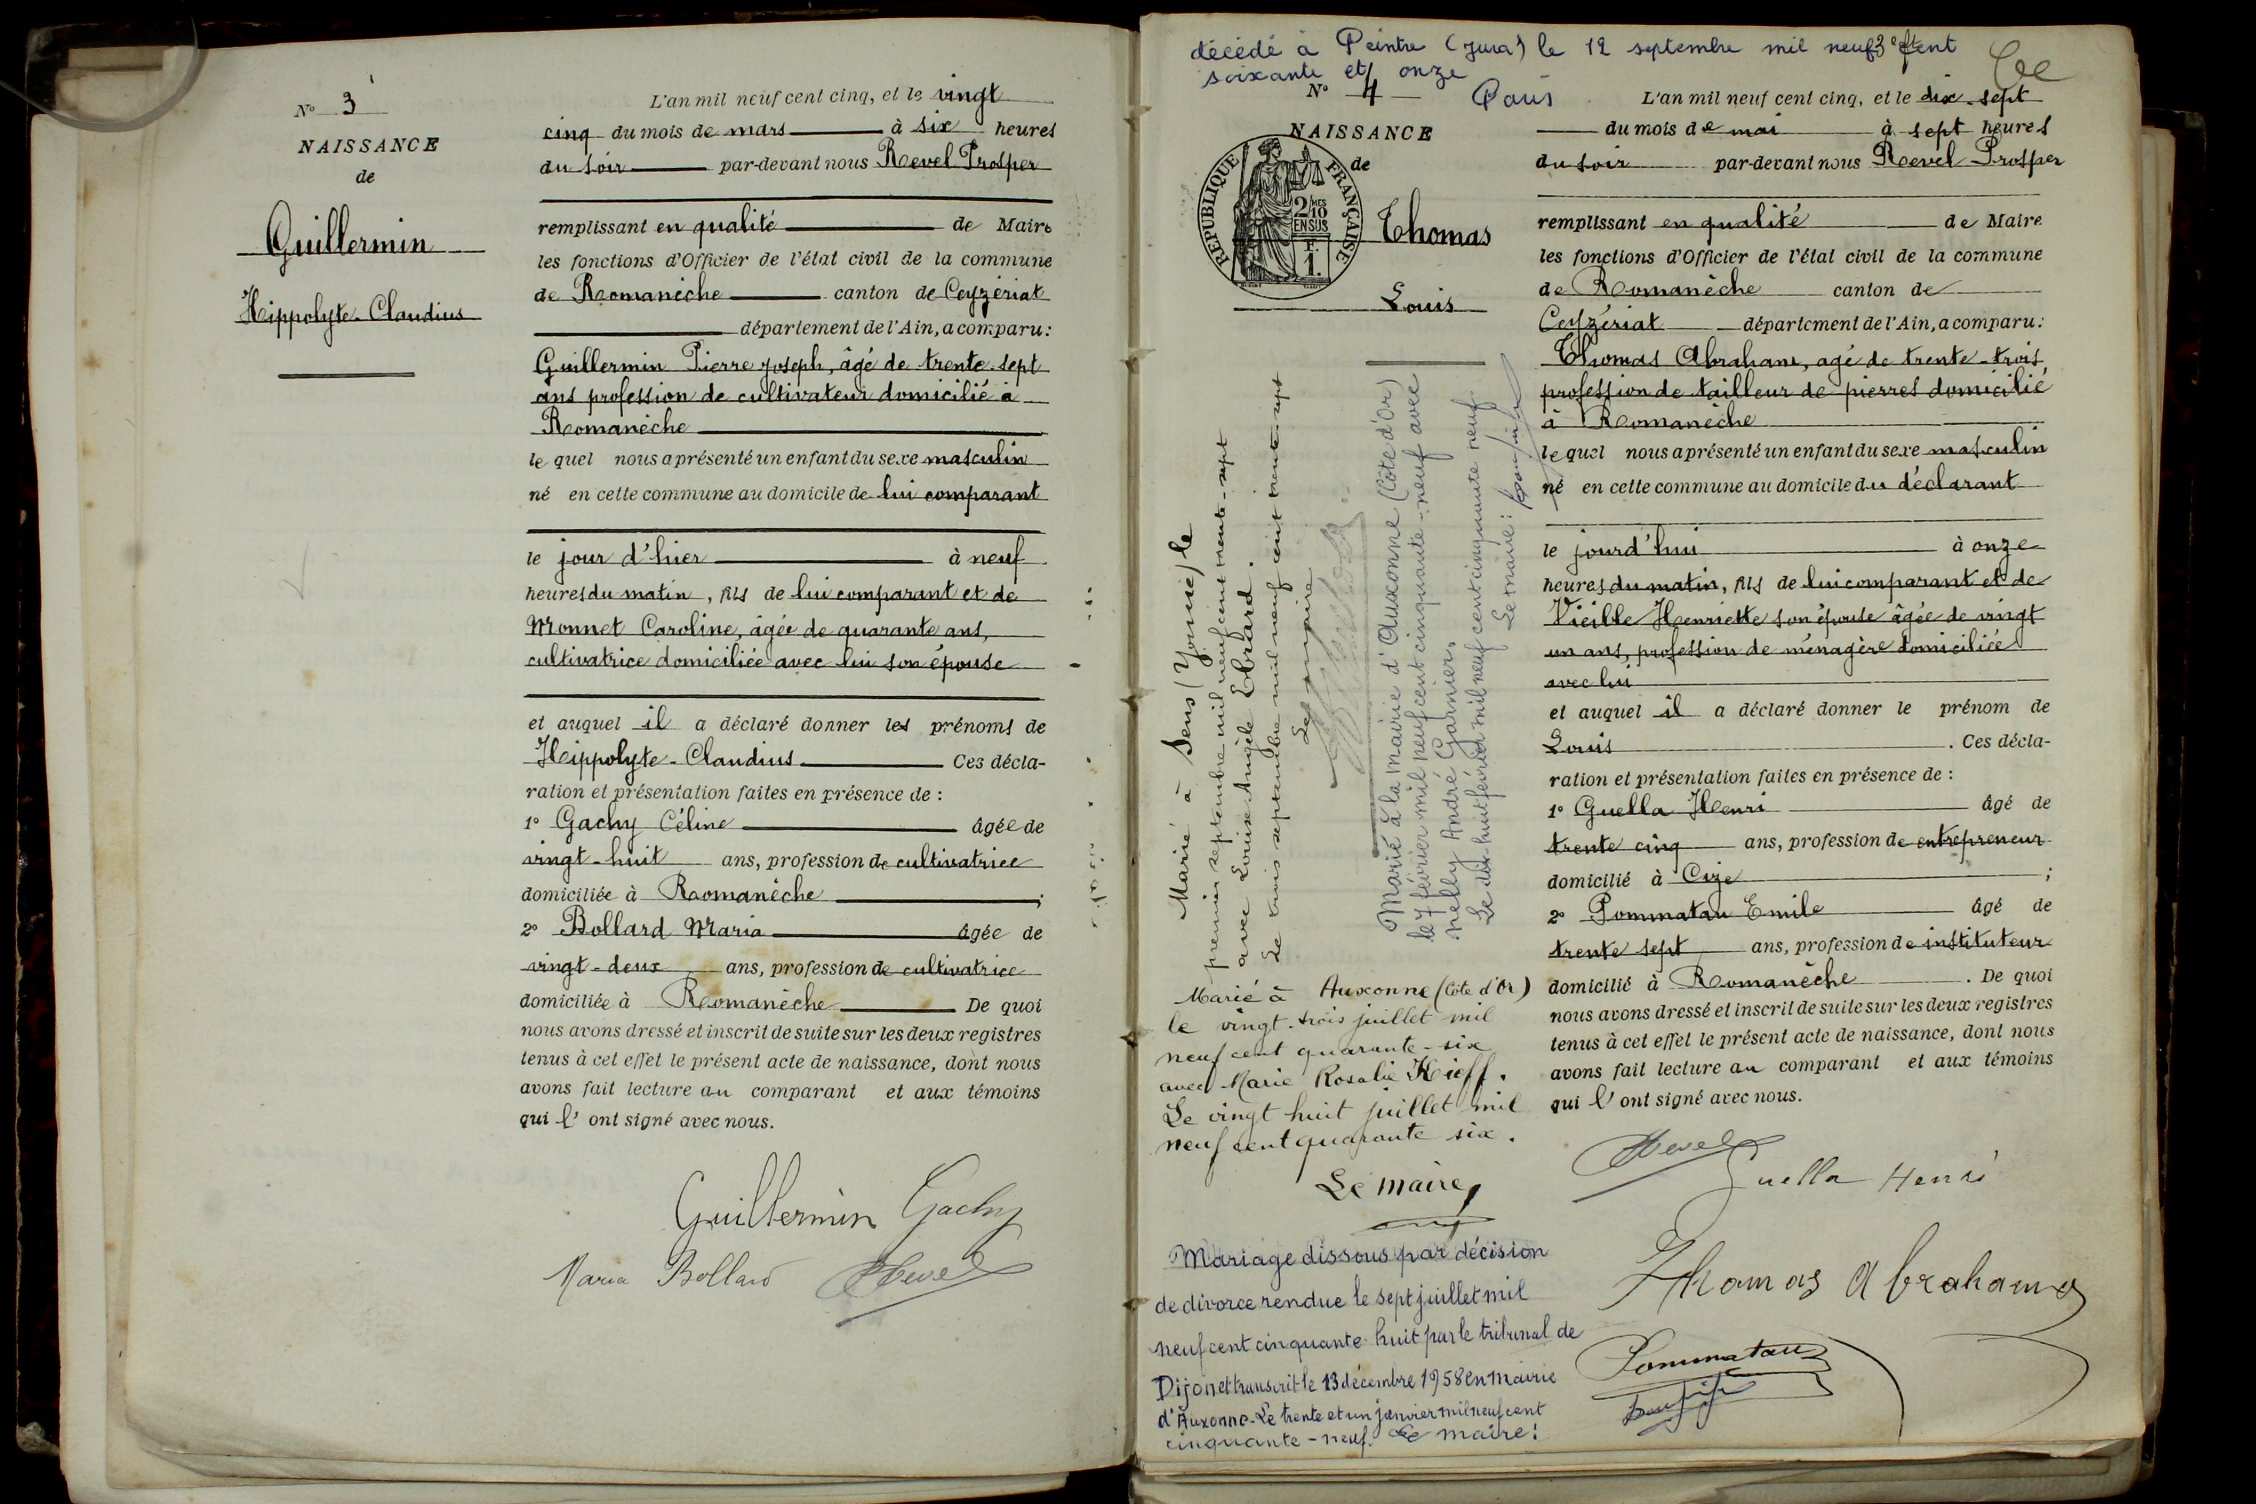 N° 3
NAISSANCE
de
Guillermin
Hippolyte-Claudius
L'an mil neuf cent cinq, et le vingt
cinq du mois de mars à six heures
du soir par-devant nous Revel Prosper
remplissant en qualité de Maire
les fonctions d'Officier de l'état civil de la commune
de Romanèche canton de Ceyzériat
département de l'Ain, a comparu:
Guillermin Pierre Joseph, âgé de trente-sept
ans profession de cultivateur domicilié à
Romanèche
le quel nous a présenté un enfant du sexe masculin
né en cette commune au domicile de lui comparant
le jour d'hier à neuf
heures du matin, fils de lui comparant et de
Monnet Caroline, âgée de quarante ans,
cultivatrice domiciliée avec lui son épouse
et auquel il a déclaré donner les prénoms de
Hippolyte-Claudius Ces décla-
ration et présentation faites en présence de :
1° Gachy Céline âgée de
vingt-huit ans, profession de cultivatrice
domiciliée à Romanèche ;
2° Bollard Maria âgée de
vingt-deux ans, profession de cultivatrice
domiciliée à Romanèche De quoi
nous avons dressé et inscrit de suite sur les deux registres
tenus à cet effet le présent acte de naissance, dont nous
avons fait lecture au comparant et aux témoins
qui l' ont signé avec nous.
Guillermin Gachy
Maria Bollard Revel
décédé à Peintre (Jura) le 12 septembre mil neuf cent
soixante et onze
N° 4
NAISSANCE
de
RÉPUBLIQUE FRANÇAISE
2/10 MES
EN SUS
F.
1.
Thomas
Louis
Marié à Sens (Yonne) le
premier septembre mil neuf cent trente-sept
avec Louise Angèle Ebrard.
Le trois septembre mil neuf cent trente-sept
Le maire
Marié à la mairie d'Auxonne (Côte d'Or)
le 7 février mil neuf cent cinquante-neuf avec
Nelly André Garnier.
Le dix-huit février mil neuf cent cinquante neuf
Le maire :
Marié à Auxonne (Côte d'Or)
le vingt-trois juillet mil
neuf cent quarante-six
avec Marie Rosalie Kieff.
Le vingt huit juillet mil
neuf cent quarante six.
Le maire,
Mariage dissous par décision
de divorce rendue le sept juillet mil
neuf cent cinquante-huit par le tribunal de
Dijon et transcrit le 13 décembre 1958 en mairie
d'Auxonne. Le trente et un janvier mil neuf cent
cinquante-neuf. Le maire :
L'an mil neuf cent cinq, et le dix-sept
du mois de mai à sept heures
du soir par-devant nous Revel Prosper
remplissant en qualité de Maire
les fonctions d'Officier de l'état civil de la commune
de Romanèche canton de
Ceyzériat département de l'Ain, a comparu:
Thomas Abraham, agé de trente-trois,
profession de tailleur de pierres domicilié
à Romanèche
le quel nous a présenté un enfant du sexe masculin
né en cette commune au domicile du déclarant
le jourd'hui à onze
heures du matin, fils de lui comparant et de
Vieille Henriette son épouse âgée de vingt
un ans, profession de ménagère domiciliée
avec lui
et auquel il a déclaré donner le prénom de
Louis . Ces décla-
ration et présentation faites en présence de :
1° Guella Henri âgé de
trente cinq ans, profession de entrepreneur
domicilié à Cize ;
2° Pommatau Emile âgé de
trente sept ans, profession de instituteur
domicilié à Romanèche . De quoi
nous avons dressé et inscrit de suite sur les deux registres
tenus à cet effet le présent acte de naissance, dont nous
avons fait lecture au comparant et aux témoins
qui l' ont signé avec nous.
Revel
Guella Henri
Thomas Abraham
Pommatau